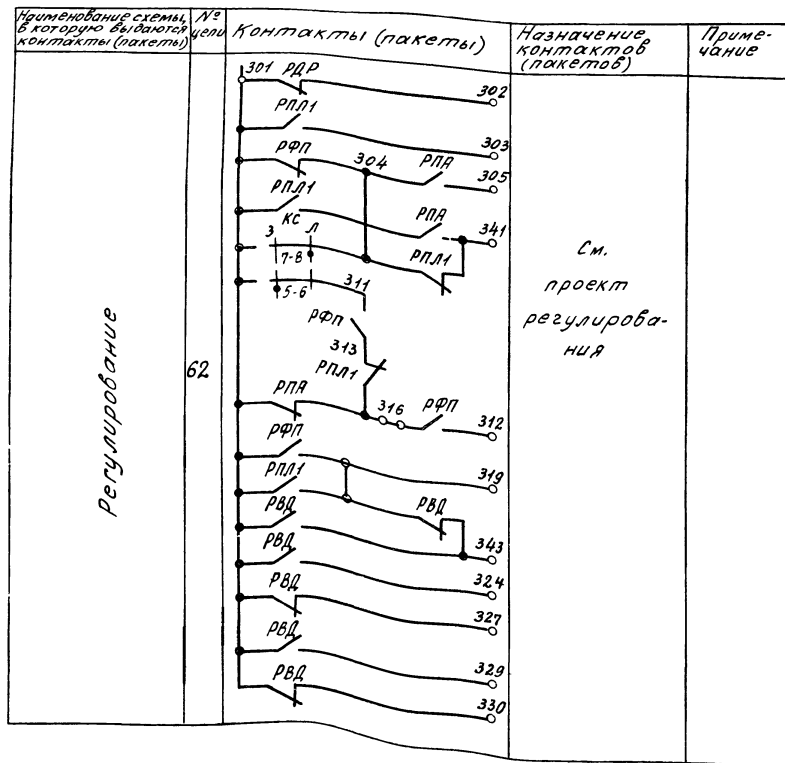 Наименование схемы,
в которую выдаются
контакты (пакеты)
№
цепи
Контакты (пакеты)
Назначение
контактов
(пакетов)
Приме-
чание
Регулирование
62
301
РДР
302
РПЛ1
303
РФП
304
РПА
305
РПЛ1
РПА
341
КС
З Л
7-8
РПЛ1
5-6
311
РФП
313
РПЛ1
РПА
316
РФП
312
РФП
319
РПЛ1
РВД
РВД
343
РВД
324
РВД
327
РВД
329
РВД
330
См.
проект
регулирова-
ния